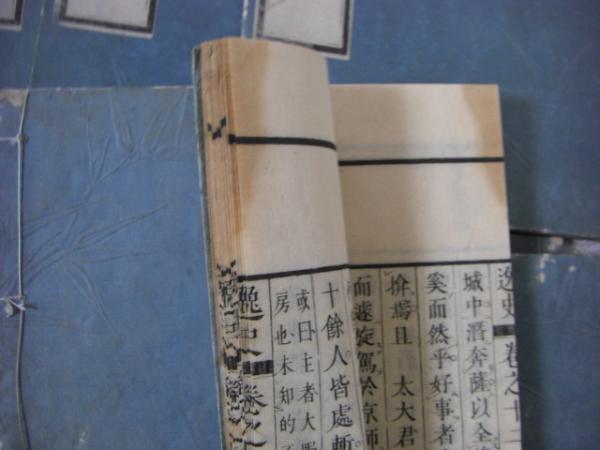 逸史 卷之十二
城中潛奔薩以全
奚而然乎好事者
揜焉且 太大君
而遽旋駕於京師
十餘人皆處
或曰主者大
房也未知的
逸史 卷之